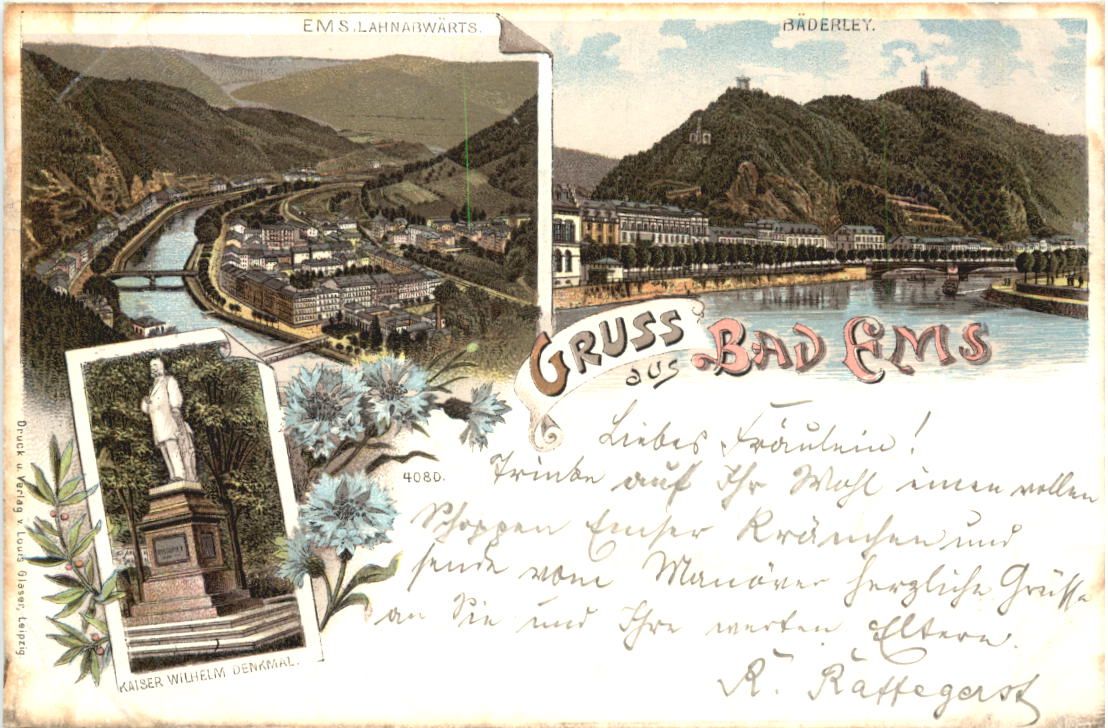 EMS, LAHNABWÄRTS.
BÄDERLEY.
GRUSS
aus BAD EMS
Liebes Fräulein!
Trinke auf Ihr Wohl einen vollen
Schoppen Emser Kränchen und
sende vom Manöver herzliche Grüsse
an Sie und Ihre werten Eltern.
R. Raffegerst
408D.
KAISER WILHELM DENKMAL.
Druck u. Verlag v. Louis Glaser, Leipzig